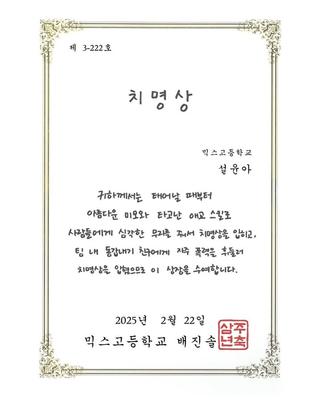 제 3-222호
치명상
믹스고등학교
설윤아
귀하께서는 태어날 때부터
아름다운 미모와 타고난 애교 스킬로
사람들에게 심각한 무리를 줘서 치명상을 입히고,
팀 내 동갑내기 친구에게 자주 폭력을 휘둘러
치명상을 입혔으므로 이 상장을 수여합니다.
2025년 2월 22일
믹스고등학교 배진솔
삼주년축